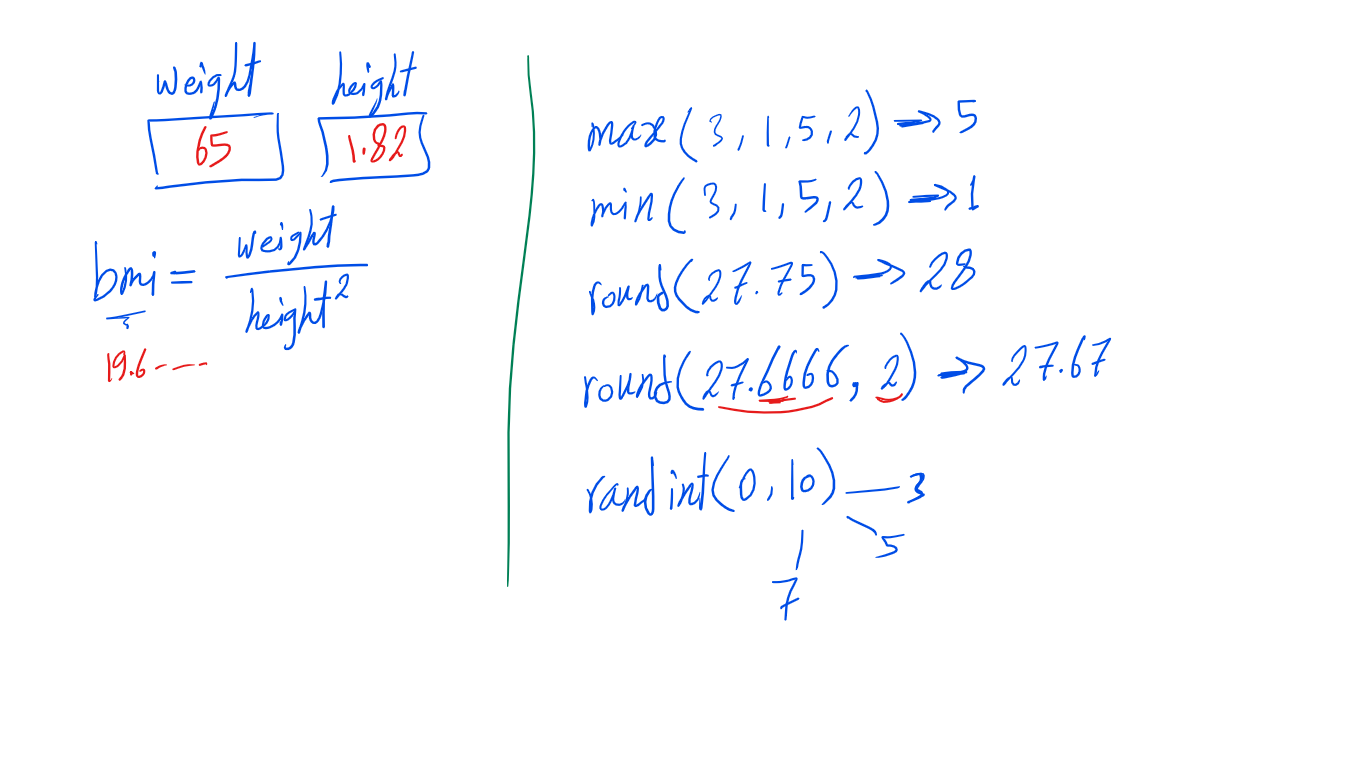 weight height
65 1.82
bmi = weight
height²
19.6 -----
max ( 3 , 1 , 5 , 2 ) → 5
min ( 3 , 1 , 5 , 2 ) → 1
round( 27.75 ) → 28
round( 27.6666 , 2 ) → 27.67
randint( 0 , 10 ) — 3
5
7